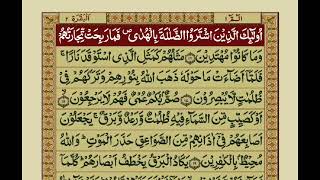 الٓمّٓ ١ اَلْبَقَرَة ٢
اُولٰٓئِكَ الَّذِيْنَ اشْتَرَوُا الضَّلٰلَةَ بِالْهُدٰى ۪ فَمَا رَبِحَتْ تِّجَارَتُهُمْ
وَمَا كَانُوْا مُهْتَدِيْنَ ﴿۱۶﴾ مَثَلُهُمْ كَمَثَلِ الَّذِى اسْتَوْقَدَ نَارًا ۚ
فَلَمَّآ اَضَآءَتْ مَا حَوْلَهٗ ذَهَبَ اللّٰهُ بِنُوْرِهِمْ وَتَرَكَهُمْ فِىْ
ظُلُمٰتٍ لَّا يُبْصِرُوْنَ ﴿۱۷﴾ صُمٌّۢ بُكْمٌ عُمْىٌ فَهُمْ لَا يَرْجِعُوْنَ ﴿۱۸﴾
اَوْ كَصَيِّبٍ مِّنَ السَّمَآءِ فِيْهِ ظُلُمٰتٌ وَّرَعْدٌ وَّبَرْقٌ ۚ يَجْعَلُوْنَ
اَصَابِعَهُمْ فِىْٓ اٰذَانِهِمْ مِّنَ الصَّوَاعِقِ حَذَرَ الْمَوْتِ ؕ وَاللّٰهُ
مُحِيْطٌۢ بِالْكٰفِرِيْنَ ﴿۱۹﴾ يَكَادُ الْبَرْقُ يَخْطَفُ اَبْصَارَهُمْ ؕ كُلَّمَآ